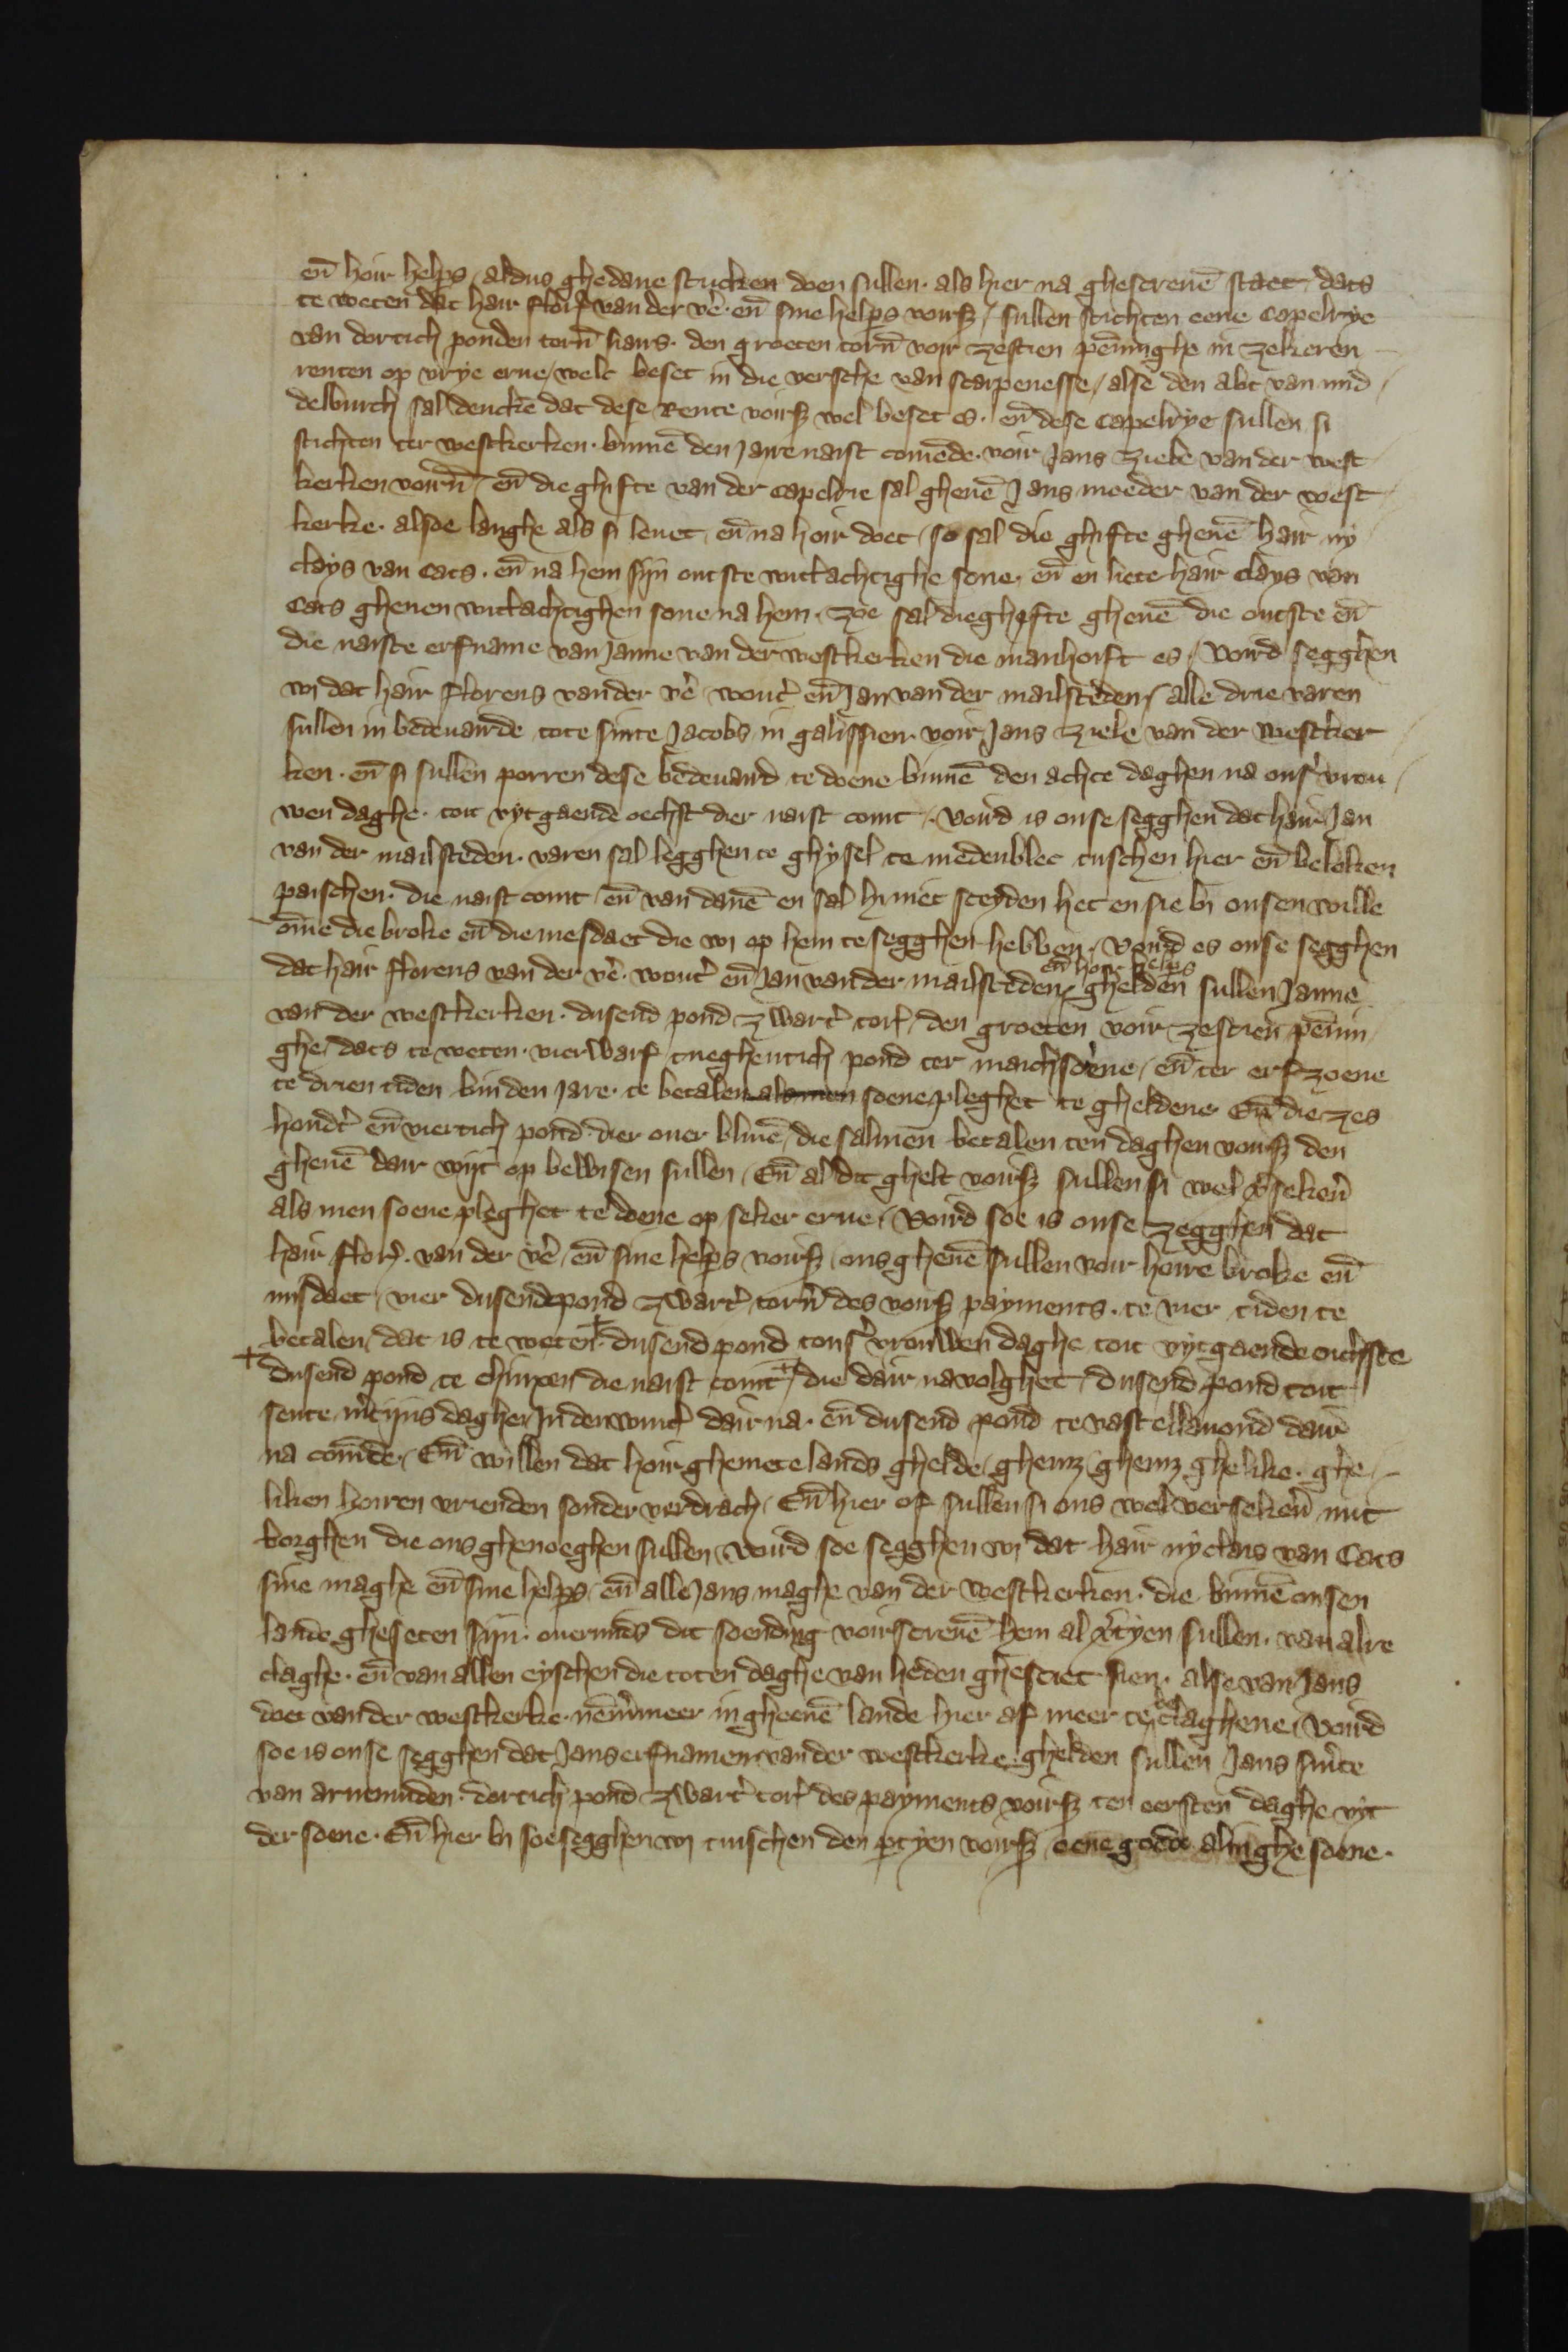 en̄ hoir helps / aldus ghedane stucken doen sullen · als hier na ghescreuē staet / dats
te weten dat hair flor̄ van der vē · en̄ sine helps voirs / sullen stichten eene capelrye
van dertich ponden torn̄ siaers · den groeten torn̄ voir zestien pēninghe in zekeren
renten op vrye erue / welt beset in die versche van scarpenesse / alse den abt van mid
delburch sal denckē dat dese Rente voirs wel beset es · en̄ dese capelrye sullen si
stichten ter westkerken · binnē den jaire naist comēde · voir Jans ziele van der west
kerken voirn̄ / en̄ die ghifte van der capelrie sal gheuē Jans moeder van der west
kerke · alsoe langhe als si leuet / en̄ na hoir doet / so sal die ghifte gheuē hair ny
clays van Cats · en̄ na hem sijn outste wittachtighe sone · en̄ en liete hair clays van
Cats ghenen wittachtighen sone na hem · zoe sal die ghifte gheuē die outste en̄
die naiste erfname van Janne van der westkerken die manhoift es / Voird segghen
wi dat hair florens van der vē wout̄ en̄ Jan van der mailsteden / alle drie varen
sullen in bedeuairde tote sinte Jacobs in galissien voir Jans ziele van der westker
ken · en̄ si sullen porren dese bedeuard te doene binnē den achte daghen na ons̄ vrou
wen daghe · toit vytgaende oechst dier naist comt / Voird is onse segghen dat hair Jan
van der mailsteden · varen sal legghen te ghysel te medenblec tuschen hier en̄ beloken
paischen · die naist comt / en̄ van danē en sal hi niet sceyden het en sie bi onsen wille
ōme die broke en̄ die mesdaet die wi op hem te segghen hebben / Voird es onse segghen
dat hair florens van der vē · wout̄ en̄ Jan van der mailsteden / en̄ hore helps ghelden sullen Janne
van der westkerken · dusend pond zwart̄ tor̄ / den groeten voir zestien pēnin
ghe / dats te weten · vierwarf tneghentich pond ter maichsoene / en̄ ter erfzoene
te drien tiden bin den jare · te betalen als men soene pleghet te gheldene · En̄ die zes
hondt̄ en̄ viertich pond dier ouer bliuē / die salmen betalen ten daghen voirs den
gheuē dair wijt op bewisen sullen / En̄ al dit ghelt voirs sullen si wel v̄sekern̄
als men soene pleghet te doene op seker erue / Voird soe is onse zegghen dat
hair flor̄ · van der vē / en̄ sine helps voirs / ons gheuē sullen voir hoire broke en̄
misdaet / vier dusend pond zwart̄ torn̄ des voirs payments · te vier tiden te
betalen / dat is te weten + dusend pond tons̄ vrouwen daghe toit vytgaende oichste
+ dusend pond te chinxen die naist comt + / die dair na volghet / dusend pond toit
sente m̄tijns daghe In den wint̄ dair na · en̄ dusend pond te vastellauond dair
na comēde / En̄ willen dat hoir ghemete lands ghelde / ghemz ghemz ghelike · ghe
liken hoiren vrienden sonder verdrach / En̄ hier of sullen si ons wel versekern̄ mit
borghen die ons ghenoeghen sullen / Voird soe segghen wi dat hair nyclais van Cats
sine maghe en̄ sine helps / en̄ alle Jans maghe van der westkerken · die binnē onsen
lande gheseten sijn · ouermids dit soending voirscreuē hem al v̄tyen sullen · van alre
claghe · en̄ van allen eysschen die toten daghe van heden ghesciet sien · alse van Jans
doet van der westkerke · nēm̄meer in gheenē lande hier af meer te claghene / Voird
soe is onse segghen dat Jans erfnamen van der westkerke · ghelden sullen Jans
van arnemuden · dertich pond zwart̄ tor̄ des payments voirs ten eersten daghe vyt
der soene · En̄ hier bi soe segghen wi tuischen den ptyen voirs / eene goede alinghe soene ·